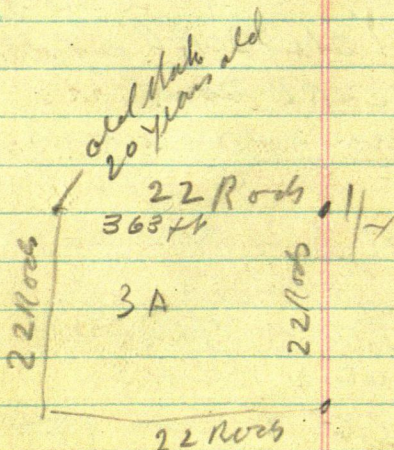 old
20 years old
22 Rods
363 ft
22 Rods
3 A
22 Rods
22 Rods